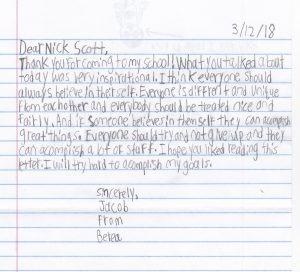 3/12/18
Dear Nick Scott,
Thank you for coming to my school! What you talked about
today was very inspirational. I think everyone should
always believe in therself. Everyone is diffrent and unique
from eachother and everybody should be treated nice and
fairly. And if someone believes in themself they can acomplish
great things. Everyone should try and not give up and they
can acomplish a lot of stuff. I hope you liked reading this
letter. I will try hard to acomplish my goals.
Sincerely,
Jacob
From
Berea